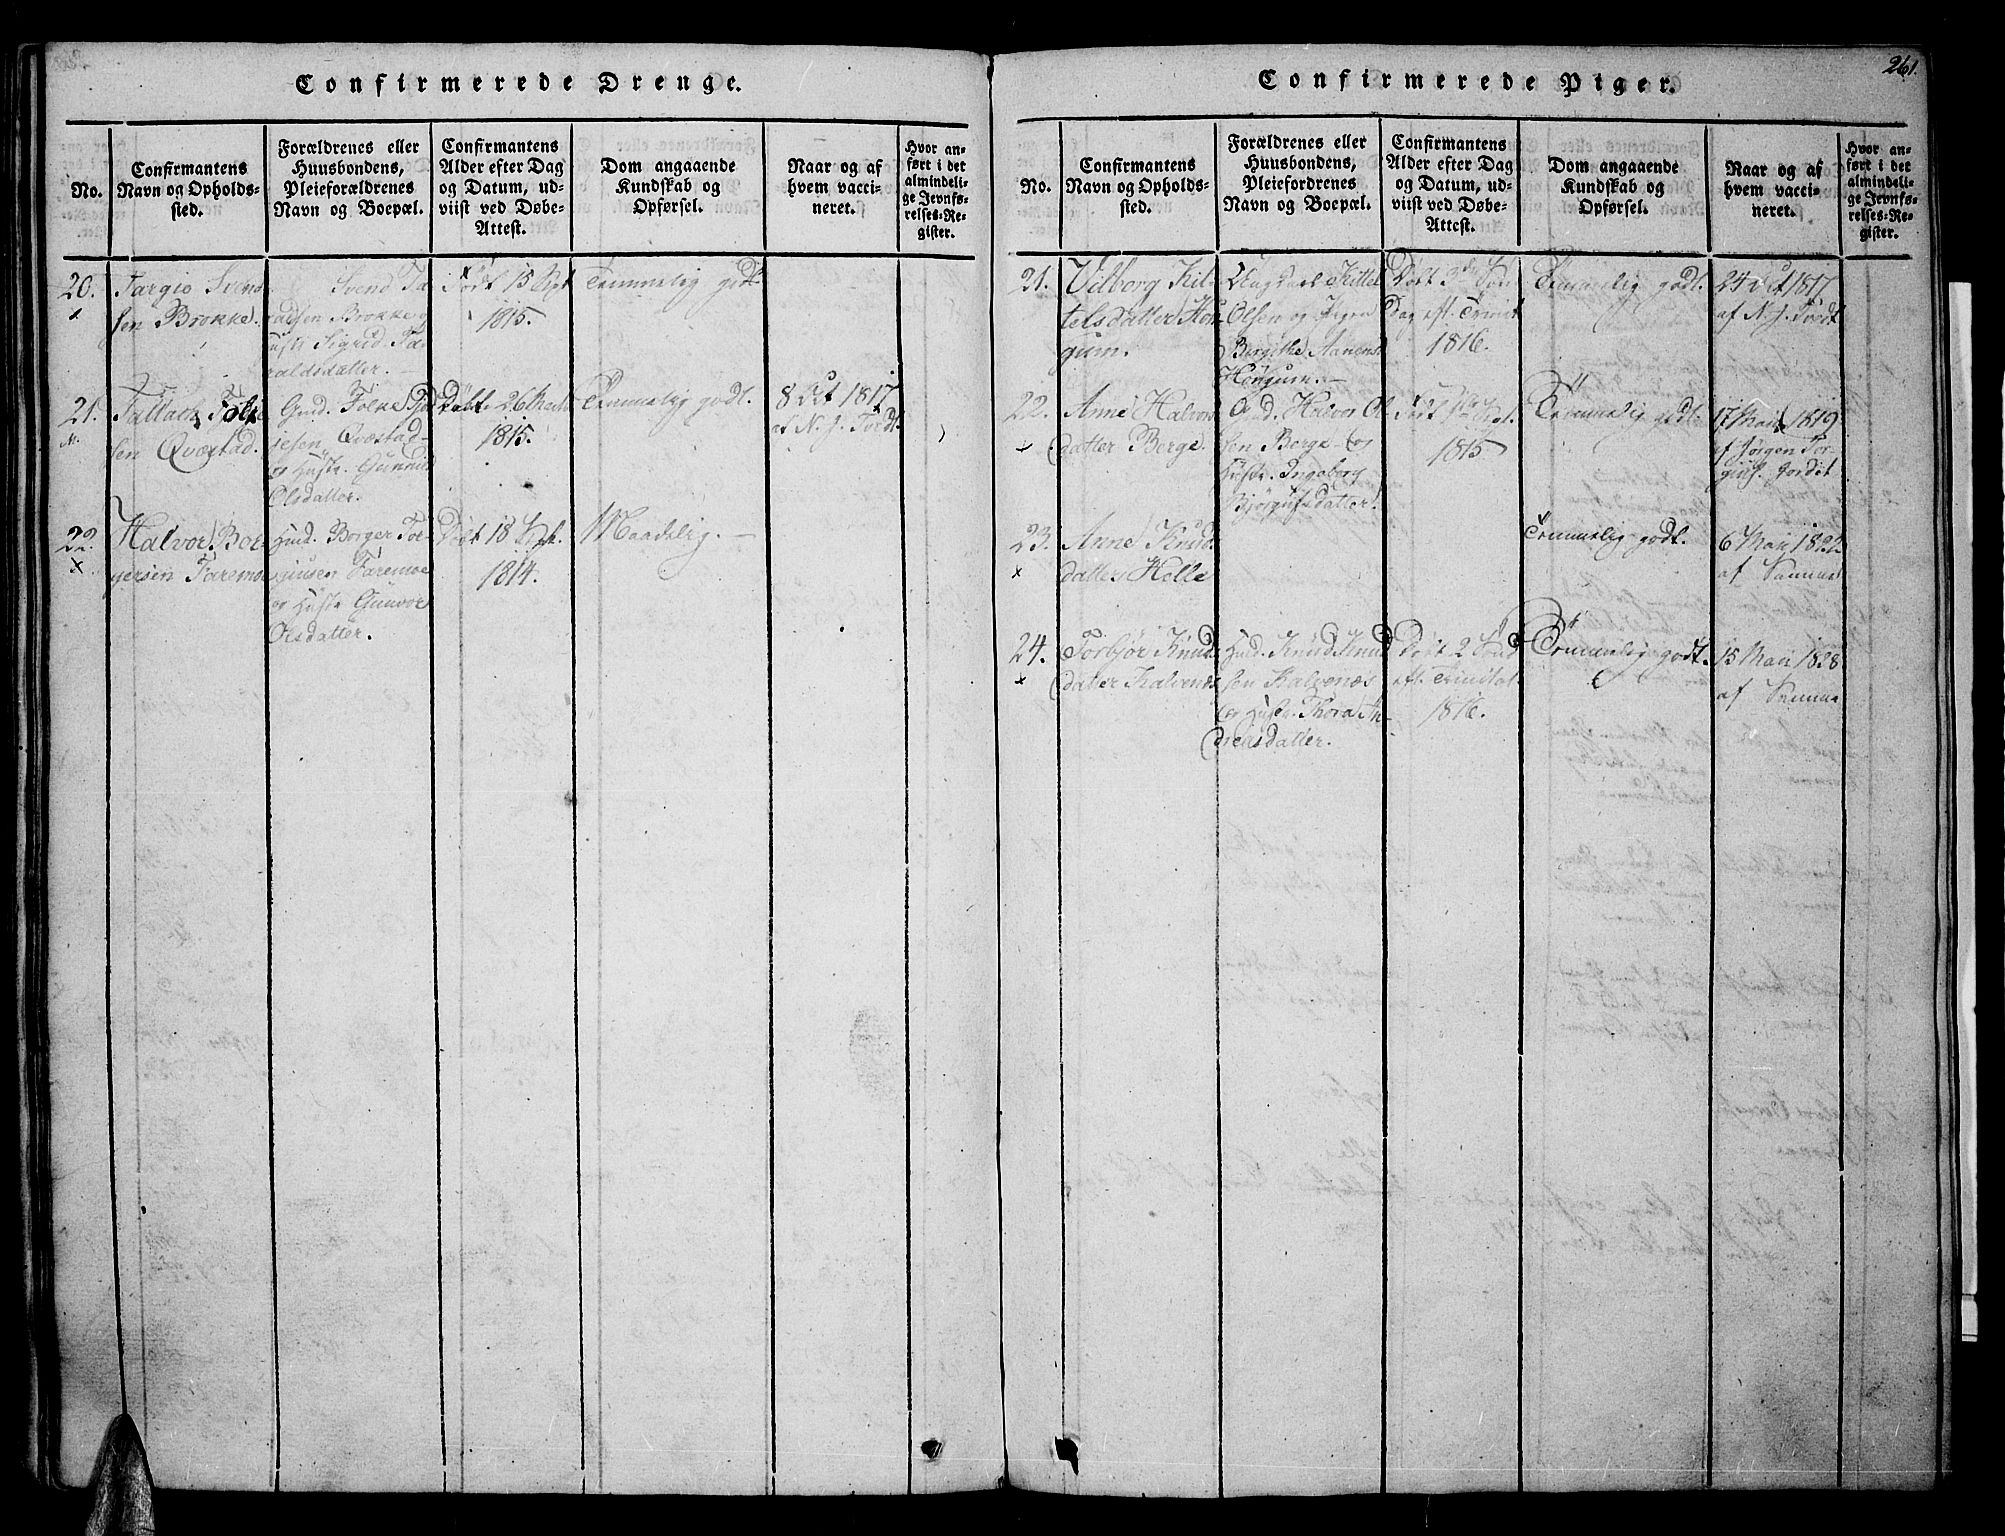 Confirmerede Drenge.
No.
Confirmantens
Navn og Opholds-
sted.
Forældrenes eller
Huusbondens,
Pleieforældrenes
Navn og Boepæl.
Confirmantens
Alder efter Dag
og Datum, ud-
viist ved Døbe-
Attest.
Dom angaaende
Kundskab og
Opførsel.
Naar og af
hvem vacci-
neret.
Hvor an-
ført i det
almindeli-
ge Jevnfø-
relses-Re-
gister.
20.
Targio Svens
sen Brokke.
Svend Ta
raldsen Brokke
Sigrid Ta-
raldsdatter.
Født 15
1815.
Temmelig godt
21.
Tallach Folke
sen Qvæstad.
Gmd. Folke
Qvæstad
og Hustr. Gunnild
Olsdatter.
26
1815.
Temmelig godt.
8 Oct 1817
af N. J. Tvedt.
22.
Halvor Bor-
gersen Faremoe
Huusd. Borger Tor-
giusen Faremoe
og Hustr Gunvor
Olsdatter.
18 Sept.
1814.
Maadelig.
Confirmerede Piger.
261.
No.
Confirmantens
Navn og Opholds-
sted.
Forældrenes eller
Huusbondens,
Pleiefordrenes
Navn og Boepæl.
Confirmantens
Alder efter Dag
og Datum, ud-
viist ved Døbe-
Attest.
Dom angaaende
Kundskab og
Opførsel.
Naar og af
hvem vacci-
neret.
Hvor an-
ført i det
almindeli-
ge Jevnfø-
relses-Re-
gister.
21.
Vilborg Kit-
telsdatter Hon-
gum.
Kittel
Olsen og
Birgithe Aanens
Hongum.
Døbt 3de Søn
Dag eft. Trinit
1816.
Temmelig godt.
24 Oct 1817
af N. J. Tvedt
22.
Anne Halvors
datter Berge
Gmd. Halvor Ol
sen Berge og
Hustr. Ingeborg
Bjørgufsdatter.
1815
Temmelig godt
17 Mai 1819
af Jørgen Tor
gius. Jordet
23.
Anne Knud
datter Helle
Temmelig godt.
6 Mai 1822
af Samme
24.
Torbjør Knud
datter Kalvenæs
Huusd. Knud Knud
sen Kalvenæs
og Hustr. Thora An-
dreasdatter.
Døbt 2 Sønd
eft. Trinitat
1816.
Temmelig godt.
15 Mai 1828
af Samme